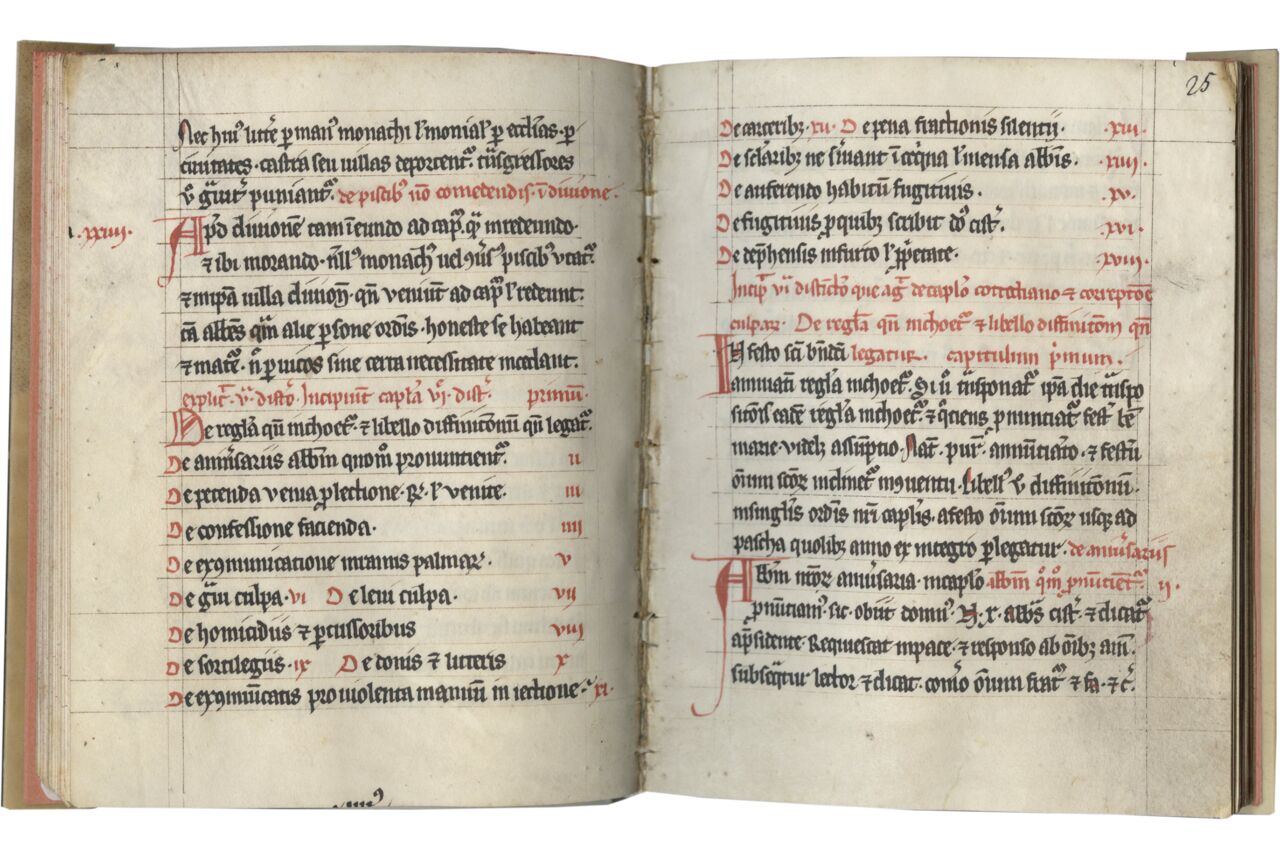 Nec hui⁹ litt̃e p man⁹ monachi l' monial' p eccl'ias · p
ciuitates · castra seu uillas deportent᷑. t̃nsgressores
v̊ g̃uit̃ puniant᷑. de piscib⁹ nõ comedendis · ĩ diuione.
.xxiiij. Apd diuionẽ tam ĩ eundo ad cap᷑. q̃ in redeundo.
⁊ ibi morando · null⁹ monach⁹ uel ꝯũs⁹ piscib⁹ utat᷑.
⁊ in ip̃a uilla diuioñ. qñ ueniũt ad cap᷑ l' redeunt.
tã abb̃es q̃m alie p̱sone ordĩs · honeste se habeant
⁊ mat̃e · ñ p uicos sine certa necessitate incedant.
explic̃. v̊. dist̃o. Incipiunt cap̃la vı̊. dist̃. primũ.
De regl'a qñ inchoet᷑. ⁊ libello diffinitionũ qñ legat᷑.
De anniũsariis abb̃m quom̊ pronuntient᷑. ii
De petenda uenia p̱ lectione · R̃. l' venite. iii
De confessione facienda. iiii
De exꝯmunicatione in ramis palmaꝝ. v
De g̃ui culpa · vi De leui culpa. vii
De homicidiis ⁊ p̱cussoribus viii
De sortilegiis · ix De donis ⁊ litteris x
De exꝯmũicatis pro uiolenta manuũ iniectione. xi.
25
De carcerib⁊. xii. De pena fractionis silentii. .xiii.
De sclãrib⁊ ne s̃uiant ĩ coq̃na l' mensa abb̃is. .xiiii.
De auferendo habitũ fugitiuis. .xv.
De fugitiuis p̱ quib⁊ scribit dõ cist̃. .xvi.
De dep̃hensis in furto l' p̃p̃etate. .xviii.
Incip̃. vı̊ distinct̃o que ag̃. de cap̃lo cottidiano ⁊ correptiõe
culpaꝝ. De regl'a qñ inchoet᷑ ⁊ libello diffinitõm qñ
IN festo sc̃i bñdcĩ legatur. capitulum p̃mum.
iamiuati regl'a inchoet᷑. Si ũ t̃nsponat᷑ ip̃a die t̃nspo
sitiõis eadẽ regl'a inchoet᷑. ⁊ q̃ciens p̱nunciat᷑ fest̃ be͂
marie · uidel⁊ assũptio. Nat̃. pur̃. annũciatõ. ⁊ festũ
om̃iũ sc̃oꝝ inclinet᷑ in ꝯuentu. Libell⁹ v̊ diffinitionũ.
in singl'is ordĩs nr̃i cap̃lis · a festo om̃iũ sc̃oꝝ usq⁊ ad
pascha quolib⁊ anno ex integro p̱legatur. de anniũsariis
Abb̃m nr̃oꝝ anniũsaria · in cap̃lo abb̃m q̊m̊ p̱nũtient᷑. ij.
p̱nũtiam⁹. sic. obiit domn⁹. N. x. abb̃s cist̃. ⁊ dicat᷑
a p̃sidente. Requiescat in pace. ⁊ responso ab om̃ib⁊ am̃.
subseq̃tur lector ⁊ dicat. com̃o om̃iũ frat᷑. ⁊ fa. ⁊ c̃.